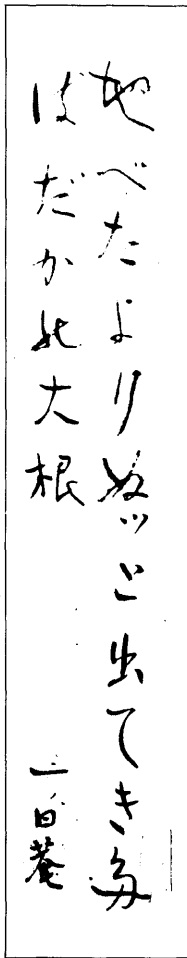 地べたよりぬッと出てき多
はだか能大根
一日菴